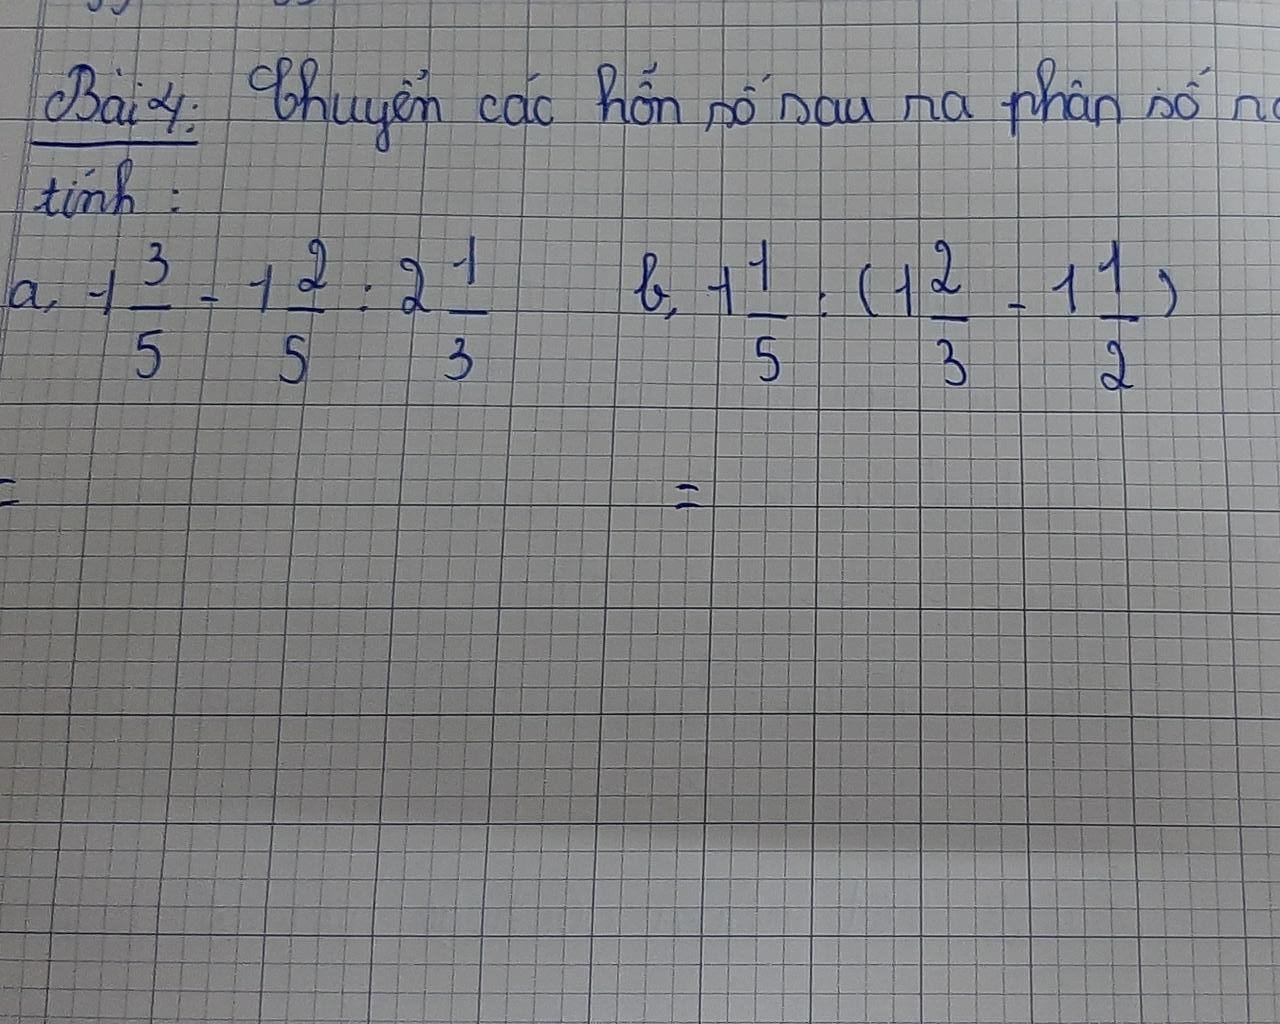 Bài 4: Chuyển các hỗn số sau ra phân số
tính:
a, 1 3/5 - 1 2/5 : 2 1/3 b, 1 1/5 : (1 2/3 - 1 1/2)
= =